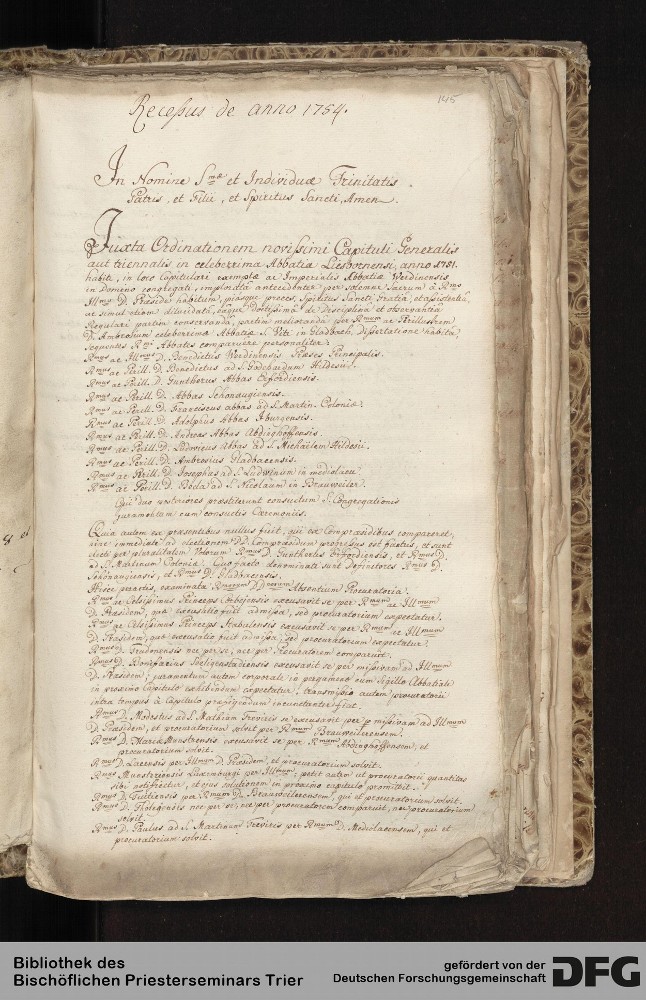 145
Recessus de anno 1754.
In Nomine Smæ et Individuæ Trinitatis
Patris, et Filii, et Spiritus Sancti, Amen.
Juxta Ordinationem novissimi Capituli Generalis
aut triennalis in celeberrima Abbatia Liesbornensi, anno 1751.
habiti, in loco Capitulari exemptæ ac Imperialis Abbatiæ Werdinensis
in Domino congregati, implorata antecedenter per solemne Sacrum à Rmo
Illmo D. Præside habitum, piasque preces, Spiritus Sancti gratia, et assistentia,
ac simul etiam dilucidata, eaque doctissima de Disciplina et observantia
Regulari partim conservanda, partim melioranda per Rmum ac Perillustrem
D. Ambrosium celeberrimæ Abbatiæ S. Viti in Gladbach, dissertatione habita,
sequentes Rmi Abbates comparuere personaliter.
Rmus ac Illmus D. Benedictus Werdinensis Præses Principalis.
Rmus ac Perill. D. Benedictus ad S. Godehardum Hildesii.
Rmus ac Perill. D. Guntherus Abbas Erfordiensis.
Rmus ac Perill. D. Abbas Schönaugiensis.
Rmus ac Perill. D. Franciscus abbas ad S. Martin. Coloniæ.
Rmus ac Perill. D. Adolphus Abbas Iburgensis.
Rmus ac Perill. D. Andreas Abbas Abdinghoffensis.
Rmus ac Perill. D. Ludovicus Abbas ad S. Michaëlem Hildesii.
Rmus ac Perill. D. Ambrosius Gladbacensis.
Rmus ac Perill. D. Josephus ad S. Ludwinum in mediolacu.
Rmus ac Perill. D. Beda ad S. Nicolaum in Brauweiler.
Qui duo posteriores præstiterunt consuetum S. Congregationis
juramentum cum consuetis Cæremoniis.
Quia autem ex præsentibus nullus fuit, qui ex Compræsidibus compareret,
hinc immediatè ad electionem DD. Compræsidum progressus est factus, et sunt
electi per pluralitatem Votorum Rmus D. Guntherus Erffordiensis, et Rmus D.
ad S. Martinum Coloniæ. Quo facto denominati sunt Definitores Rmus D.
Schönaugiensis, et Rmus D. Gladbacensis.
Hisce peractis, examinata Rmorum DDnorum Absentium Procuratoria.
Rmus ac Celsissimus Princeps Corbejensis excusavit se per Rmum ac Illmum
D. Præsidem, quæ excusatio fuit admissa, sed procuratorium expectatur.
Rmus ac Celsissimus Princeps Stabulensis excusavit se per Rmum ac Illmum
D. Præsidem, quæ excusatio fuit admissa, sed procuratorium expectatur.
Rmus D. Trudonensis nec per se, nec per Procuratorem comparuit.
Rmus D. Bonifacius Seeligenstadiensis excusavit se per missivam ad Illmum
D. Præsidem, juramentum autem corporale in pergameno cum Sigillo Abbatiali
in proximo Capitulo exhibendum expectatur, transmissio autem procuratorii
intra tempus à Capitulo præfigendum incunctanter fiat.
Rmus D. Modestus ad S. Mathiam Treviris se excusavit per missivam ad Illmum
D. Præsidem, et procuratorium solvit per Rmum Brauweilerensem.
Rmus D. Marck Munstrensis excusavit se per Rmum Abdinghoffensem, et
procuratorium solvit.
Rmus D. Lacensis per Illmum D. Præsidem, et procuratorium solvit.
Rmus Munsteriensis Luxemburgi per Illmum, petit autem ut procuratorii quantitas
sibi notificetur, et ejus solutionem in proximo capitulo promittit.
Rmus D. Tuitiensis per Rmum D. Brauweilerensem, qui et procuratorium solvit.
Rmus D. Tholegensis nec per se, nec per procuratorem comparuit, nec procuratorium
solvit.
Rmus D. Paulus ad S. Martinum Treviris per Rmum D. Mediolacensem, qui et
procuratorium solvit.
Bibliothek des
Bischöflichen Priesterseminars Trier
gefördert von der
Deutschen Forschungsgemeinschaft
DFG